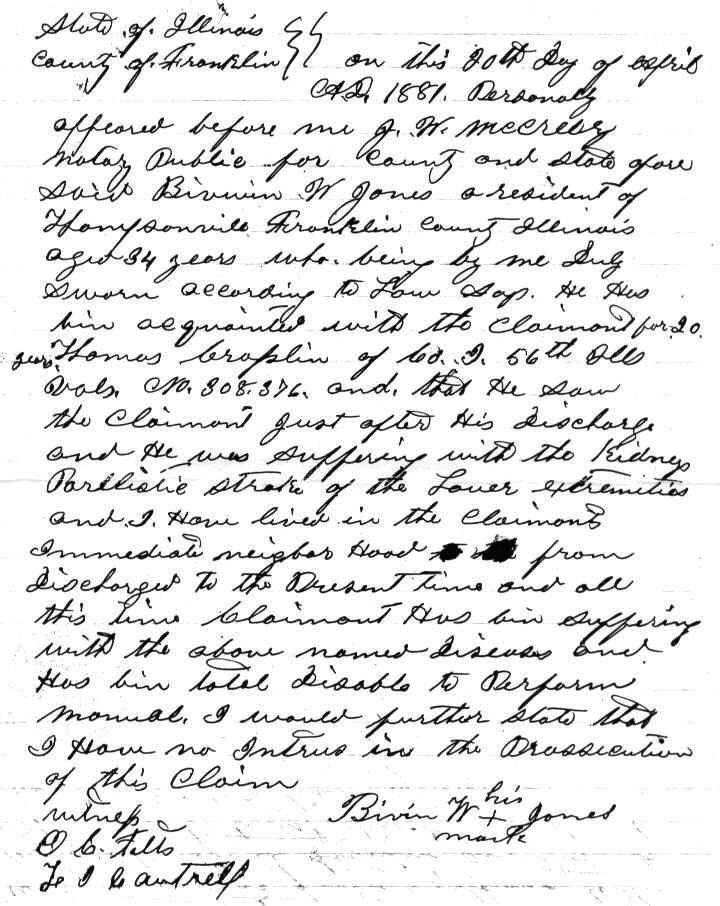 State of Illinois
County of Franklin }} on this 20th Day of April
A.D. 1881. Personaly
appeared before me J. W. McCreey
Notary Public for County and State afore
Said Bivwin W Jones a resident of
Thompsonvile Franklin County Illinois
aged 34 years who being by me Duly
Sworn according to Law Says. He Has
bin acquainted with the Claimant for 20
years. Thomas Croslin of Co. I. 56th Ills
Vols. No. 308.376. and. that He saw
the Claimant Just after His Discharge
and He was Suffering with the Kidneys
Parllistic stroke of the Lower extremities
and I Have lived in the Claimants
Immediate neighbor Hood from
Discharged to the Present Time and all
this time Claimant Has bin suffering
with the above named Diseases and
Has bin total Disable to Perform
Manual. I would further state that
I Have no Intrus in the Prossecution
of this Claim
witness Bivin W his + Jones
mark
O C. Fills
L I Cantrell